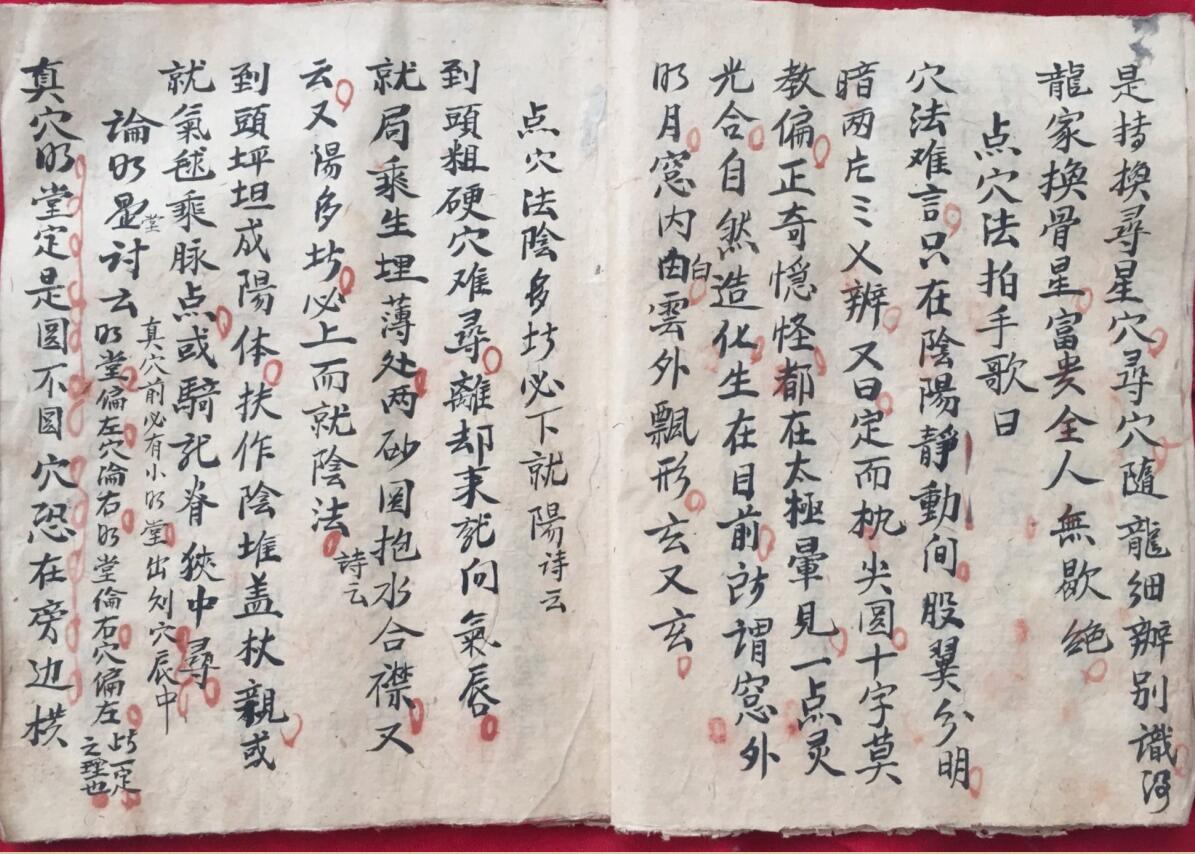 是持换尋星穴尋穴隨龍细辦别識得
龍家換骨星富贵全人無歇绝
点穴法拍手歌曰
穴法难言只在陰陽靜動间股翼分明
暗两片三乂辨又曰定而枕尖圆十字莫
教偏正奇怪都在太極暈見一点灵
光合自然造化生在目前所謂窓外
明月窓内白雲外飄形玄又玄
点穴法陰多扦必下就陽诗云
到頭粗硬穴难尋離却来就向氣唇
就局乘生埋薄处两砂圆抱水合襟又
云又陽多扦必上而就陰法詩云
到頭坪坦成陽体扶作陰堆盖杖親或
就氣毬乘脉点或騎死脊狹中尋
真穴前必有小明堂出到穴辰中
論明堂訣云明堂偏左穴偏右明堂偏右穴偏左此一定之理也
真穴明堂定是圆不圆穴恐在旁边横